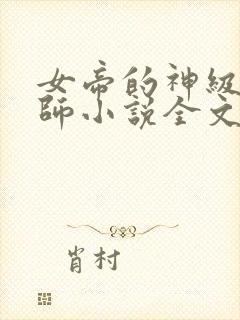 女帝的神級
師小説全文
肖村